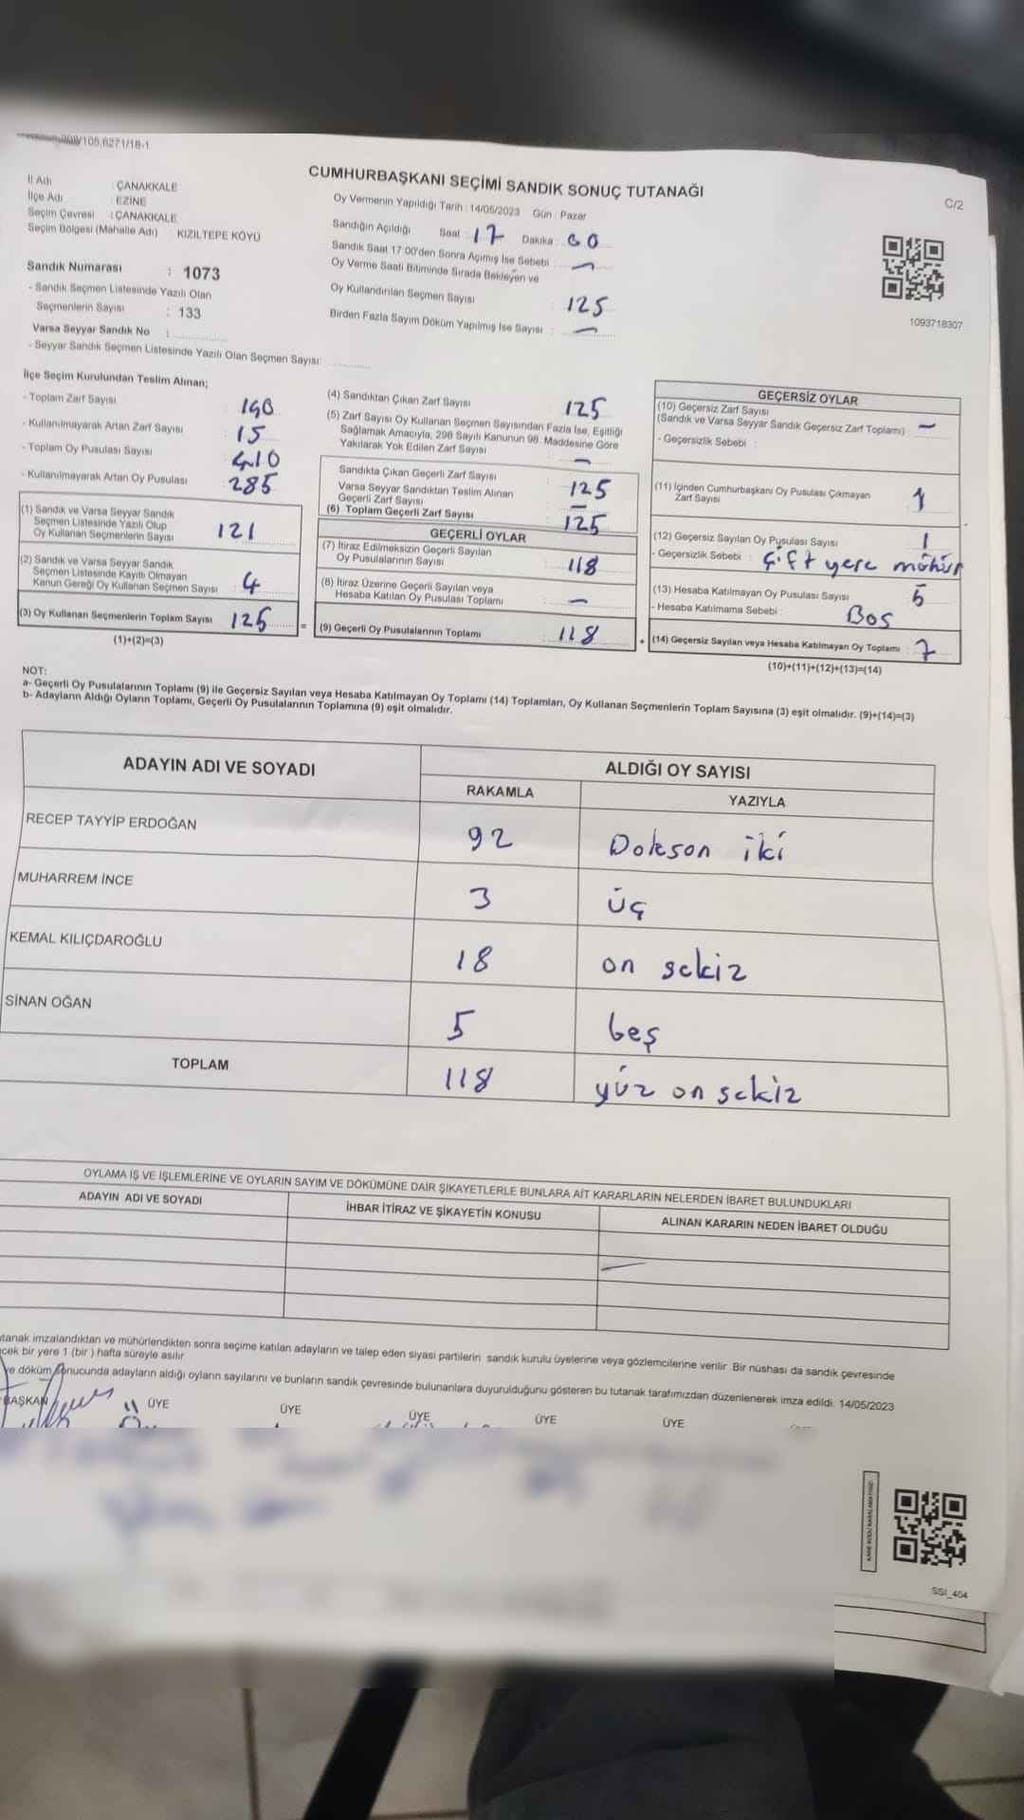 /105,6271/18-1
CUMHURBAŞKANI SEÇİMİ SANDIK SONUÇ TUTANAĞI
C/2
İl Adı : ÇANAKKALE
İlçe Adı : EZİNE
Seçim Çevresi : ÇANAKKALE
Seçim Bölgesi (Mahalle Adı) KIZILTEPE KÖYÜ
Oy Vermenin Yapıldığı Tarih : 14/05/2023 Gün : Pazar
Sandığın Açıldığı Saat : 17 Dakika : 00
Sandık Saat 17:00'den Sonra Açımış İse Sebebi : -
Oy Verme Saati Bitiminde Sırada Bekleyen ve
Oy Kullandırılan Seçmen Sayısı : 125
Birden Fazla Sayım Döküm Yapılmış İse Sayısı : -
1093718307
Sandık Numarası : 1073
- Sandık Seçmen Listesinde Yazılı Olan
Seçmenlerin Sayısı : 133
Varsa Seyyar Sandık No :
- Seyyar Sandık Seçmen Listesinde Yazılı Olan Seçmen Sayısı:
İlçe Seçim Kurulundan Teslim Alınan;
- Toplam Zarf Sayısı
- Kullanılmayarak Artan Zarf Sayısı 15
- Toplam Oy Pusulası Sayısı 410
- Kullanılmayarak Artan Oy Pusulası 285
(1) Sandık ve Varsa Seyyar Sandık
Seçmen Listesinde Yazılı Olup
Oy Kullanan Seçmenlerin Sayısı 121
(2) Sandık ve Varsa Seyyar Sandık
Seçmen Listesinde Kayıtlı Olmayan
Kanun Gereği Oy Kullanan Seçmen Sayısı 4
(3) Oy Kullanan Seçmenlerin Toplam Sayısı 125 =
(1)+(2)=(3)
(4) Sandıktan Çıkan Zarf Sayısı 125
(5) Zarf Sayısı Oy Kullanan Seçmen Sayısından Fazla İse, Eşitliği
Sağlamak Amacıyla, 298 Sayılı Kanunun 98. Maddesine Göre
Yakılarak Yok Edilen Zarf Sayısı -
Sandıkta Çıkan Geçerli Zarf Sayısı 125
Varsa Seyyar Sandıktan Teslim Alınan
Geçerli Zarf Sayısı -
(6) Toplam Geçerli Zarf Sayısı 125
GEÇERLİ OYLAR
(7) İtiraz Edilmeksizin Geçerli Sayılan
Oy Pusulalarının Sayısı 118
(8) İtiraz Üzerine Geçerli Sayılan veya
Hesaba Katılan Oy Pusulası Toplamı -
(9) Geçerli Oy Pusulalarının Toplamı 118 +
GEÇERSİZ OYLAR
(10) Geçersiz Zarf Sayısı
(Sandık ve Varsa Seyyar Sandık Geçersiz Zarf Toplamı) : -
- Geçersizlik Sebebi :
(11) İçinden Cumhurbaşkanı Oy Pusulası Çıkmayan
Zarf Sayısı 1
(12) Geçersiz Sayılan Oy Pusulası Sayısı 1
- Geçersizlik Sebebi : Çift yere mühür
(13) Hesaba Katılmayan Oy Pusulası Sayısı 5
- Hesaba Katılmama Sebebi : Boş
(14) Geçersiz Sayılan veya Hesaba Katılmayan Oy Toplamı : 7
(10)+(11)+(12)+(13)=(14)
NOT:
a- Geçerli Oy Pusulalarının Toplamı (9) ile Geçersiz Sayılan veya Hesaba Katılmayan Oy Toplamı (14) Toplamları, Oy Kullanan Seçmenlerin Toplam Sayısına (3) eşit olmalıdır. (9)+(14)=(3)
b- Adayların Aldığı Oyların Toplamı, Geçerli Oy Pusulalarının Toplamına (9) eşit olmalıdır.
ADAYIN ADI VE SOYADI
ALDIĞI OY SAYISI
RAKAMLA YAZIYLA
RECEP TAYYİP ERDOĞAN 92 Dokson iki
MUHARREM İNCE 3 üç
KEMAL KILIÇDAROĞLU 18 on sekiz
SİNAN OĞAN 5 beş
TOPLAM 118 yüz on sekiz
OYLAMA İŞ VE İŞLEMLERİNE VE OYLARIN SAYIM VE DÖKÜMÜNE DAİR ŞİKAYETLERLE BUNLARA AİT KARARLARIN NELERDEN İBARET BULUNDUKLARI
ADAYIN ADI VE SOYADI İHBAR İTİRAZ VE ŞİKAYETİN KONUSU ALINAN KARARIN NEDEN İBARET OLDUĞU
utanak imzalandıktan ve mühürlendikten sonra seçime katılan adayların ve talep eden siyasi partilerin sandık kurulu üyelerine veya gözlemcilerine verilir. Bir nüshası da sandık çevresinde
cek bir yere 1 (bir ) hafta süreyle asılır
ve döküm sonucunda adayların aldığı oyların sayılarını ve bunların sandık çevresinde bulunanlara duyurulduğunu gösteren bu tutanak tarafımızdan düzenlenerek imza edildi. 14/05/2023
BAŞKAN ÜYE ÜYE ÜYE ÜYE ÜYE
SSI_404